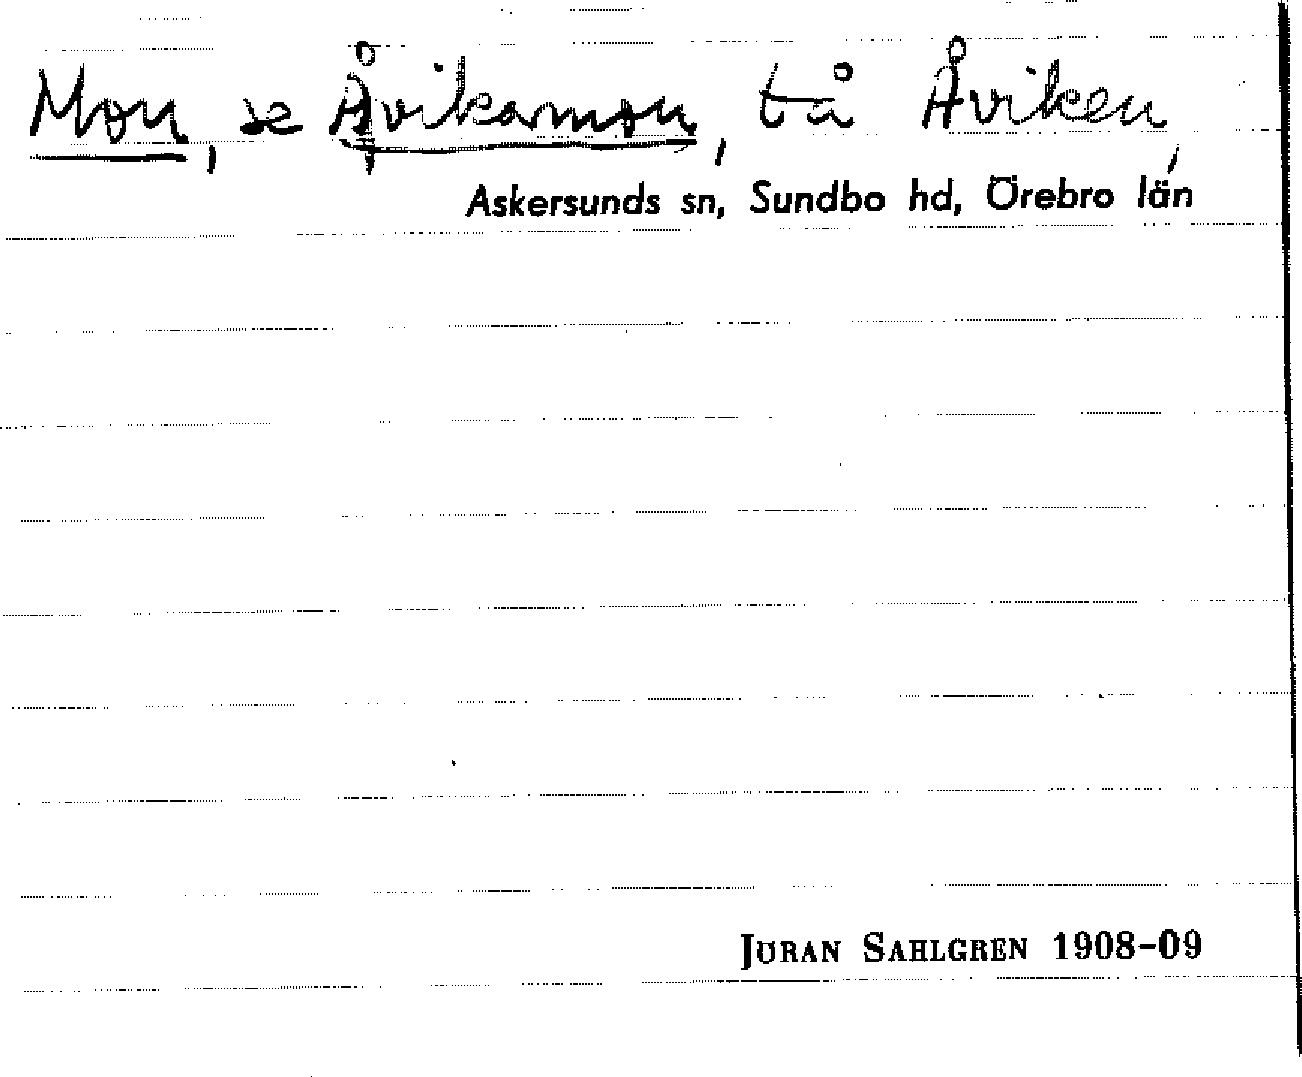 Mon, se Åvikamon, tå Åviken,
Askersunds sn, Sundbo hd, Örebro län
JÖRAN SAHLGREN 1908-09